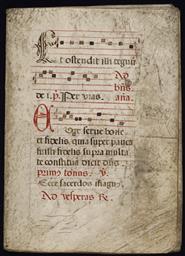 Et ostendit illi regnū
Ad
de i. p. Per vias. bñs.
aña.
Euge serve bone
et fidelis, quia super pauca
fuisti fidelis supra multa
te constituā dicit dñs.
primus tonus.
Ecce sacerdos magn⁹
Ad vesperas